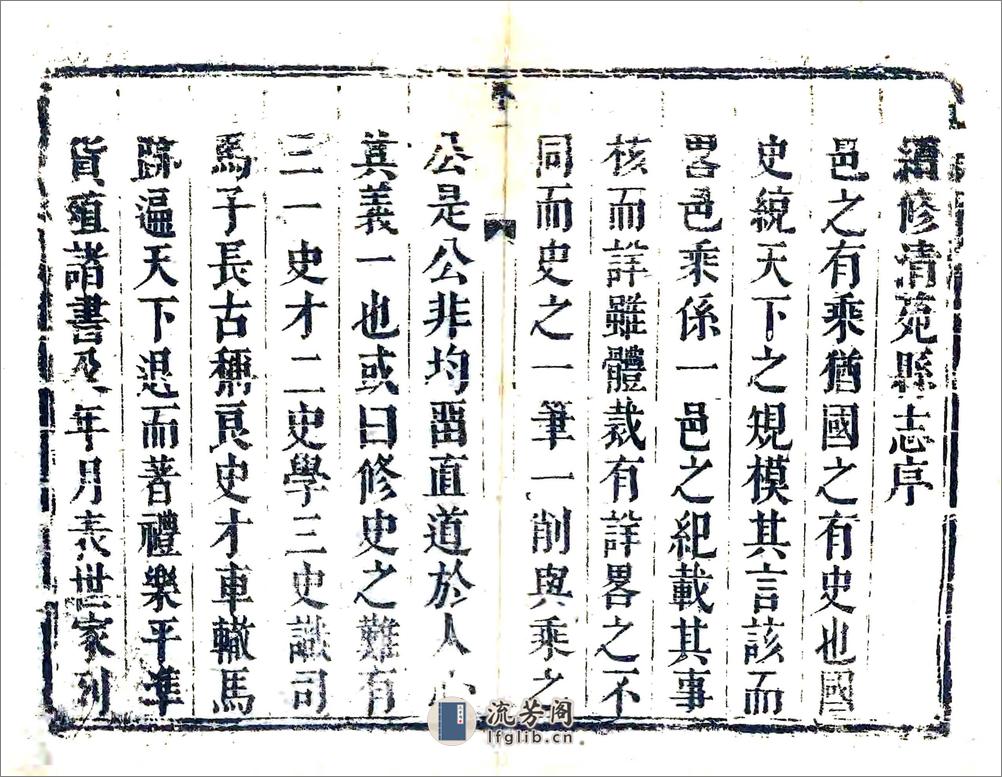 續修清苑縣志序
邑之有乘猶國之有史也國
史綂天下之規模其言該而
畧邑乘係一邑之紀載其事
核而詳雖體裁有詳畧之不
同而史之一筆一削與乘之
序一
公是公非均畱直道於人心
其義一也或曰修史之難有
三一史才二史學三史識司
馬子長古稱良史才車轍馬
跡遍天下退而著禮樂平準
貨殖諸書及年月表世家列
流芳阁
lfglib.cn